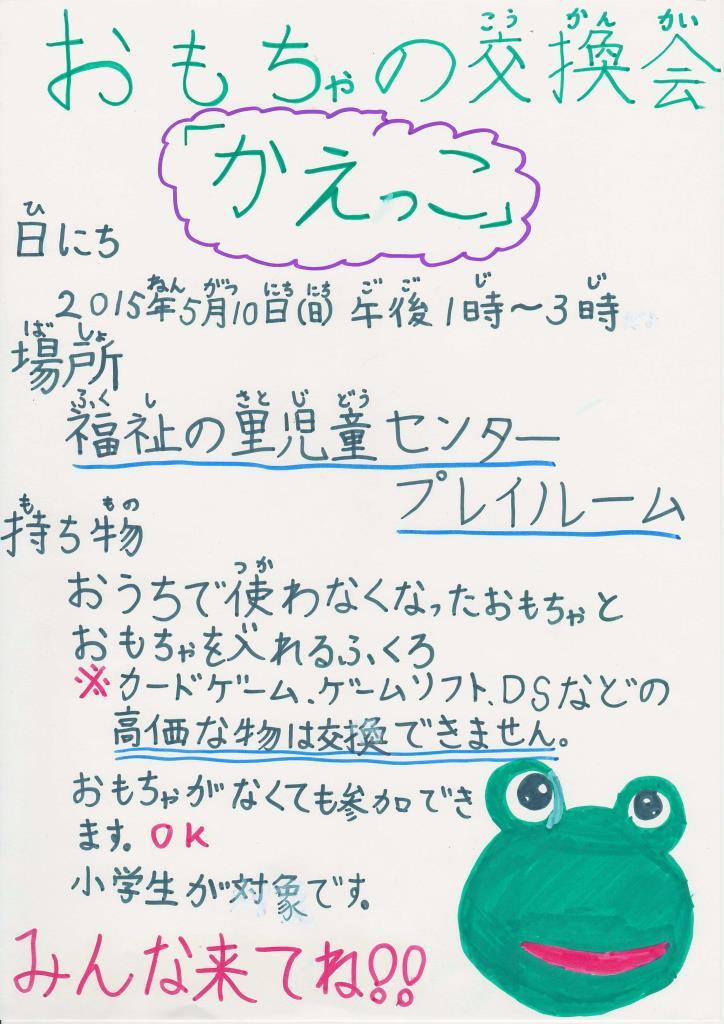 おもちゃの交換会
こうかんかい
「かえっこ」
日にち
ひ
2015年5月10日(日)午後1時～3時
ねんがつにちにちごごじじ
場所
ばしょ
福祉の里児童センター
ふくしさとじどう
プレイルーム
持ち物
ももの
おうちで使わなくなったおもちゃと
つか
おもちゃを入れるふくろ
い
※カードゲーム、ゲームソフト、DSなどの
高価な物は交換できません。
おもちゃがなくても参加でき
ます。OK
小学生が対象です。
みんな来てね!!